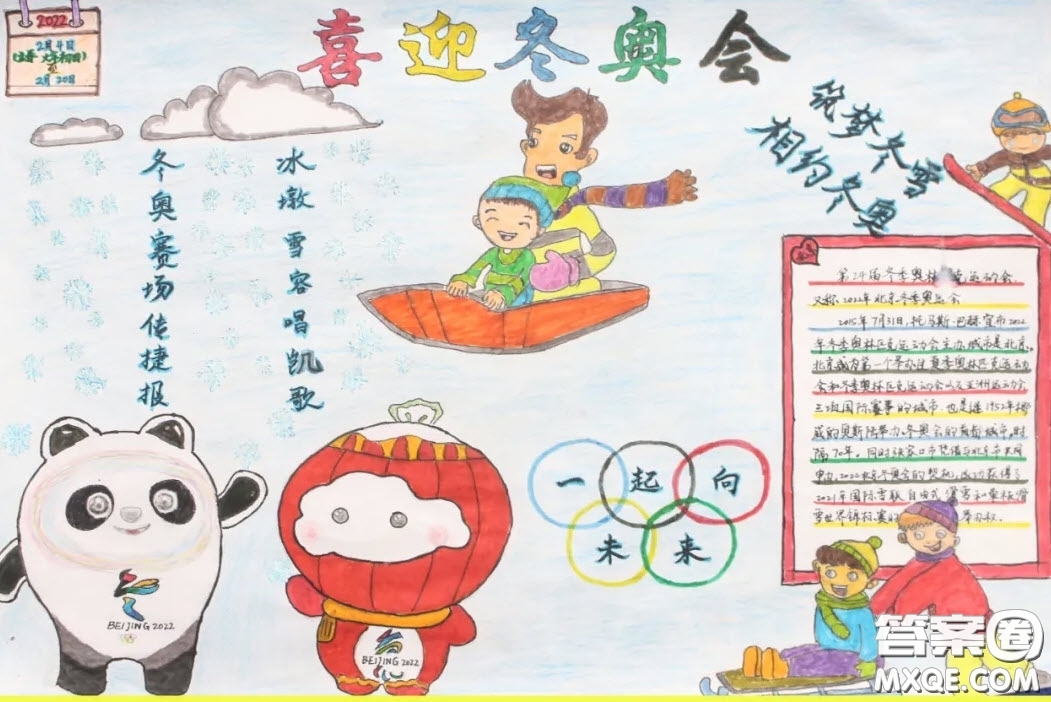 喜迎冬奥会
2022
2月4日
2月20日
筑梦冬雪
相约冬奥
冰墩雪容唱凯歌
冬奥赛场传捷报
一起向
未来
BEIJING 2022
BEIJING 2022
第24届冬季奥林
运动会
又称:2022年北京冬季奥运会
2015年7月31日,托马斯·巴赫宣布2022
年冬季奥林匹克运动会主办城市是北京。
北京成为第一个举办过夏季奥林匹克运动
会和冬季奥林匹克运动会以及亚洲运动会
三项国际赛事的城市,也是继1952年挪
威的奥斯陆举办冬奥会的首都城市,时
隔70年。同时张家口市凭借与北京市共同
申办2022北京冬奥会的契机,成功获得了
2021年国际雪联自由式滑雪和单板滑
雪世界锦标赛
举办权。
答案圈
MXQE.COM